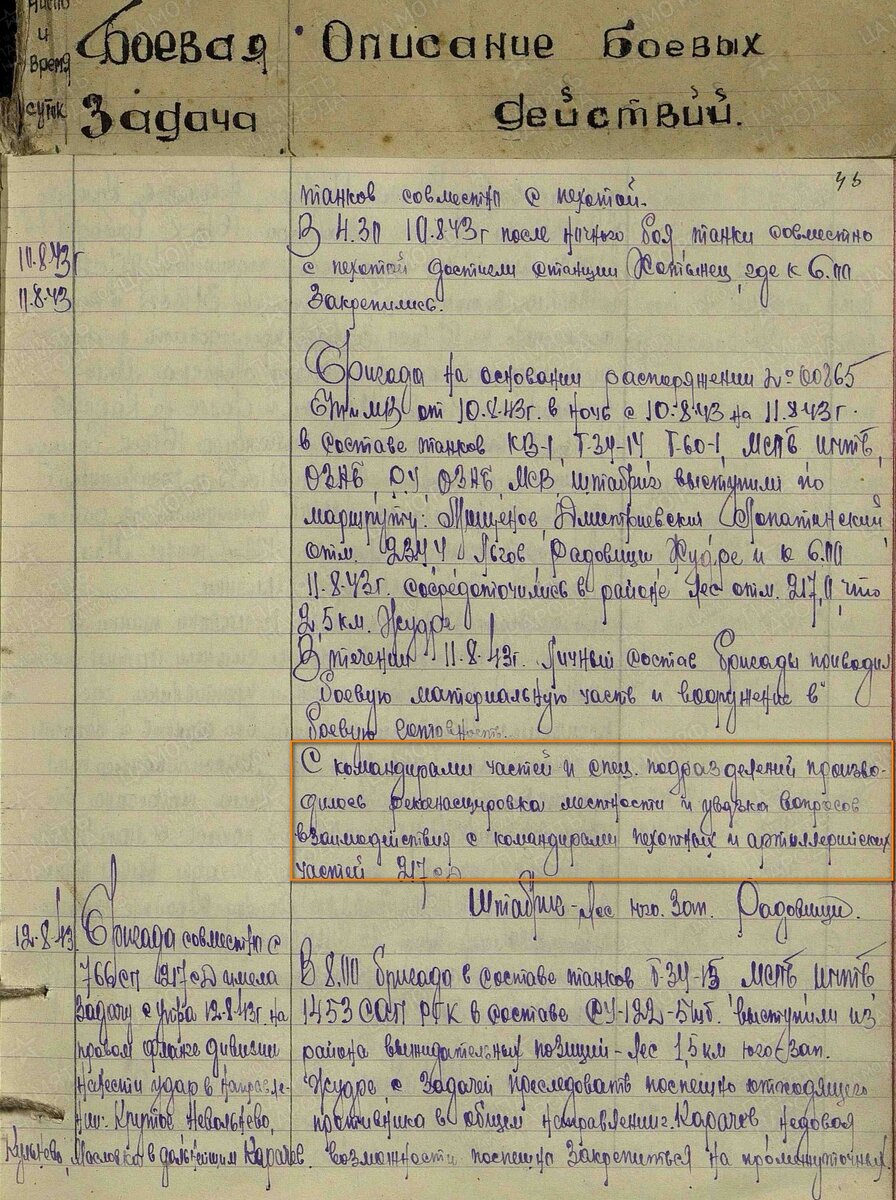 Число
и
время
суток
Боевая
Задача
Описание Боевых
действий.
танков совместно с пехотой.
10.8.43г
В 4.30 10.8.43г после ночного боя танки совместно
с пехотой достигли станции Хотынец, где к 6.00
11.8.43
Закрепились.
Бригада на основании распоряжении №00865
от 10.8.43г. в ночь с 10.8.43 на 11.8.43г.
в составе танков КВ-1, Т-34-14 Т-60-1, МСПБ ИПТБ,
МСВ, штабриг выступили по
маршруту: Мищенов, Дмитриевский Лопатинский
отм. 234,4 Льгов, Радовищи, Жудре и к 6.00
11.8.43г. сосредоточились в районе лес отм. 217,0, что
2,5 км. Жудре
В течении 11.8.43г. личный состав бригады приводил
боевую материальную часть и вооружение в
боевую готовность.
С командирами частей и спец. подразделений произво-
дилось рекенасцировка местности и увязка вопросов
взаимодействия с командирами пехотных и артиллерийских
частей 217сд
Штабриг - лес юго. зап. Радовищи.
12.8.43
Бригада совместно с
766сп 217сд имела
задачу с утра 12.8.43г. на
правом фланге дивизии
нанести удар в направле-
нии: Крутое Невольнево,
Кульнево, Масловка в дальнейшим Карачев.
В 8.00 бригада в составе танков Т-34-15 МСПБ ИПТБ
1453 САП РГК в составе СУ-122-5шт. выступили из
района выжидательных позиций - лес 1,5 км юго-зап.
Жудре, с задачей преследовать поспешно отходящего
противника в общем направлении г. Карачев недовая
возможности поспешно закрепиться на промежуточных